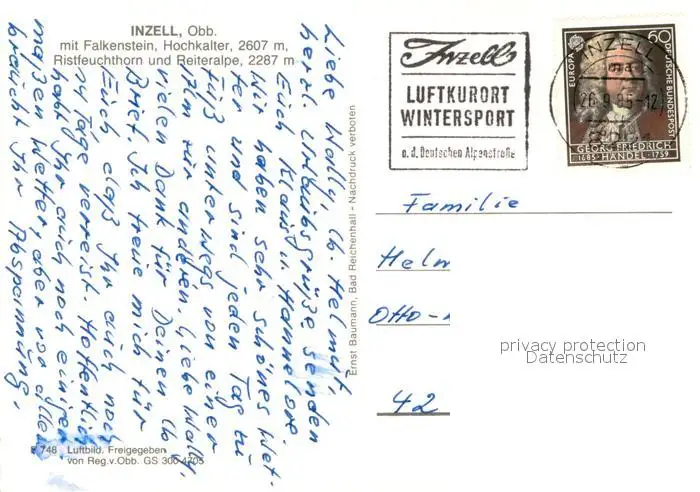 INZELL, Obb.
mit Falkenstein, Hochkalter, 2607 m,
Ristfeuchthorn und Reiteralpe, 2287 m
Liebe Wally, lb. Helmut
herzl. Urlaubsgrüße senden
Euch Klaus u. Hannelore.
Wir haben sehr schönes Wet-
ter und sind jeden Tag zu
Fuß unterwegs von einer
Alm zur anderen. Liebe Wally,
vielen Dank für Deinen lb
Brief. Ich freue mich für
Euch, daß Ihr auch noch
Tage verreist. Hoffentlich
habt Ihr auch noch einiger-
maßen Wetter, aber vor allem
braucht Ihr Abspannung.
E 748 Luftbild. Freigegeben
von Reg.v.Obb. GS 300 4705
Ernst Baumann, Bad Reichenhall - Nachdruck verboten
Inzell
LUFTKURORT
WINTERSPORT
a. d. Deutschen Alpenstraße
INZELL
26.9.85-12
EUROPA CEPT
60
DEUTSCHE BUNDESPOST
GEORG FRIEDRICH
1685 HÄNDEL 1759
Familie
Helm
Otto-
42
privacy protection
Datenschutz